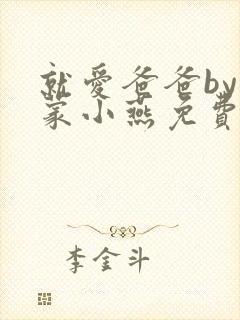 就爱爸爸by
家小燕免费
李金斗